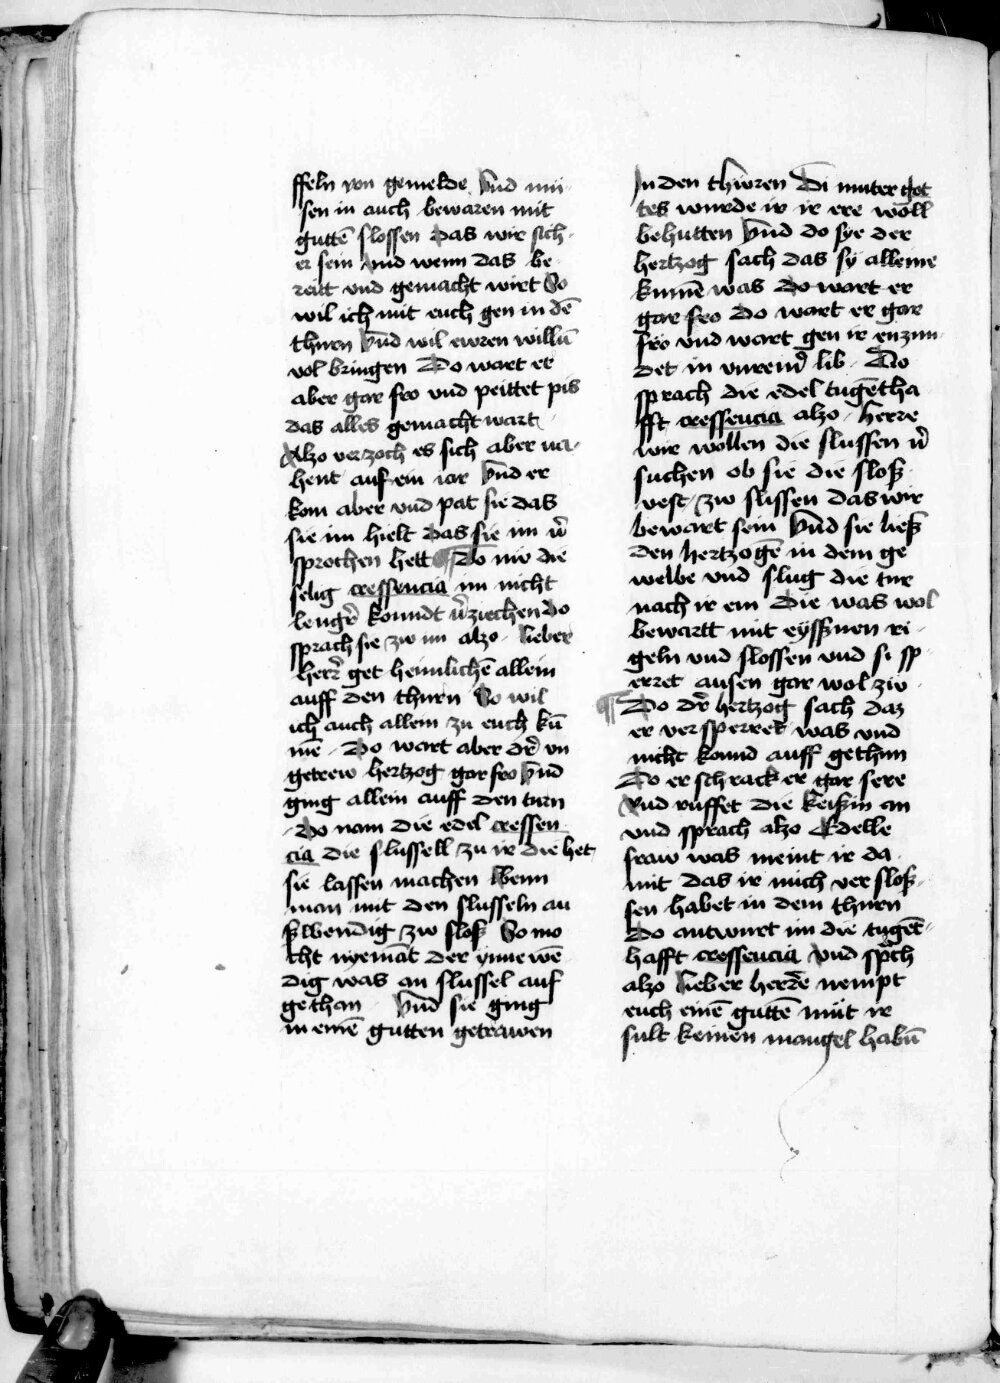 ffeln von gemelde Vnd mü
sen in auch bewaren mit
guttē slossen das wir sich
er sein Vnd wenn das be
reitt vnd gemacht wirt So
wil ich mit euch gen in dē
thurn Vnd wil ewren willū
vol bringen Do wart er
aber gar fro vnd peittet pis
das alles gemacht wart
Alzo verzoch es sich aber na
hent auf ein iar Vnd er
kom aber vnd pat sie das
sie im hielt das sie im v̄
sprochen hett Do nw die
selig cressencia im nicht
lengr̄ konndt v̄ziechen do
sprach sie zw im alzo lieber
herr̄ get heimlichē allein
auff den thurn So wil
ich auch allein zu euch kū
me Do wart aber dr̄ vn
getrew hertzog gar fro Vnd
ging allein auff den turn
Do nam die edel cressen
cia die slussell zu ir die het
sie lassen machen Wenn
man mit den slusseln au
ßwendig zw sloß So mo
cht nyemāt der ynnewē
dig was an slussel auf
gethan Vnd sie ging
in einē gutten getrawen
In den thuren Di muter got
tes wurde ir ir ere woll
behutten Vnd do sye der
hertzog sach das sy alleine
kumē was Do wart er
gar fro Do wart er gar
fro vnd wart gen ir enzun
det in vnreinr̄ lib Do
sprach die edel tugētha
fft cressencia alzo herre
wir wollen die slussen v̄
suchen ob sie die sloß
vest zw slissen das wir
bewart sein Vnd sie ließ
den hertzogē in dem ge
welbe vnd slug die tur
nach ir ein Die was wol
bewartt mit eyssnen ri
geln vnd slossen vnd si sp
erret ausen gar wol zw
Do dr̄ hertzog sach daz
er versperret was vnd
nicht konnd auff gethun
Do er schrack er gar sere
Vnd ruffet die keißin an
vnd sprach alzo Edelle
fraw was meint ir da
mit das ir mich versloß
sen habet in dem thurn
Do antwurt im die tugēt
hafft cressencia Vnd sprch
alzo lieber herre nempt
euch einē guttē müt ir
sült keinen mangel habū